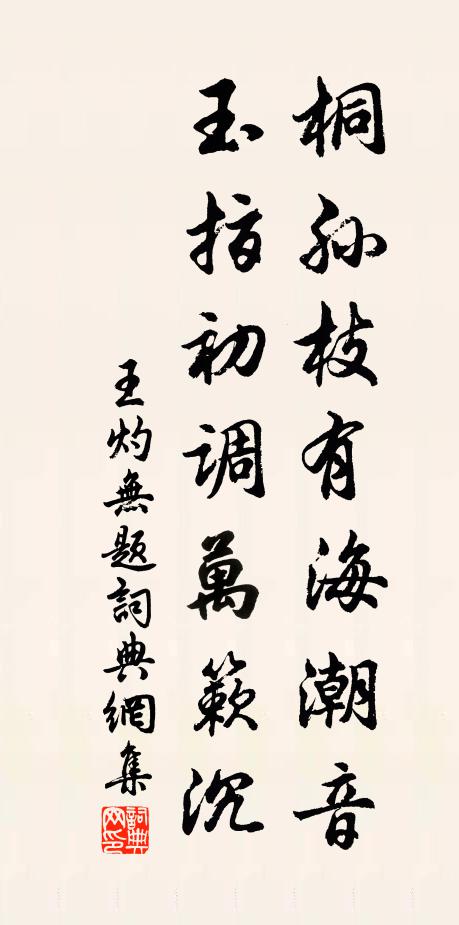 桐孙枝有海潮音
玉指初调萬籁沉
王灼無题詞典網集
詞典网印